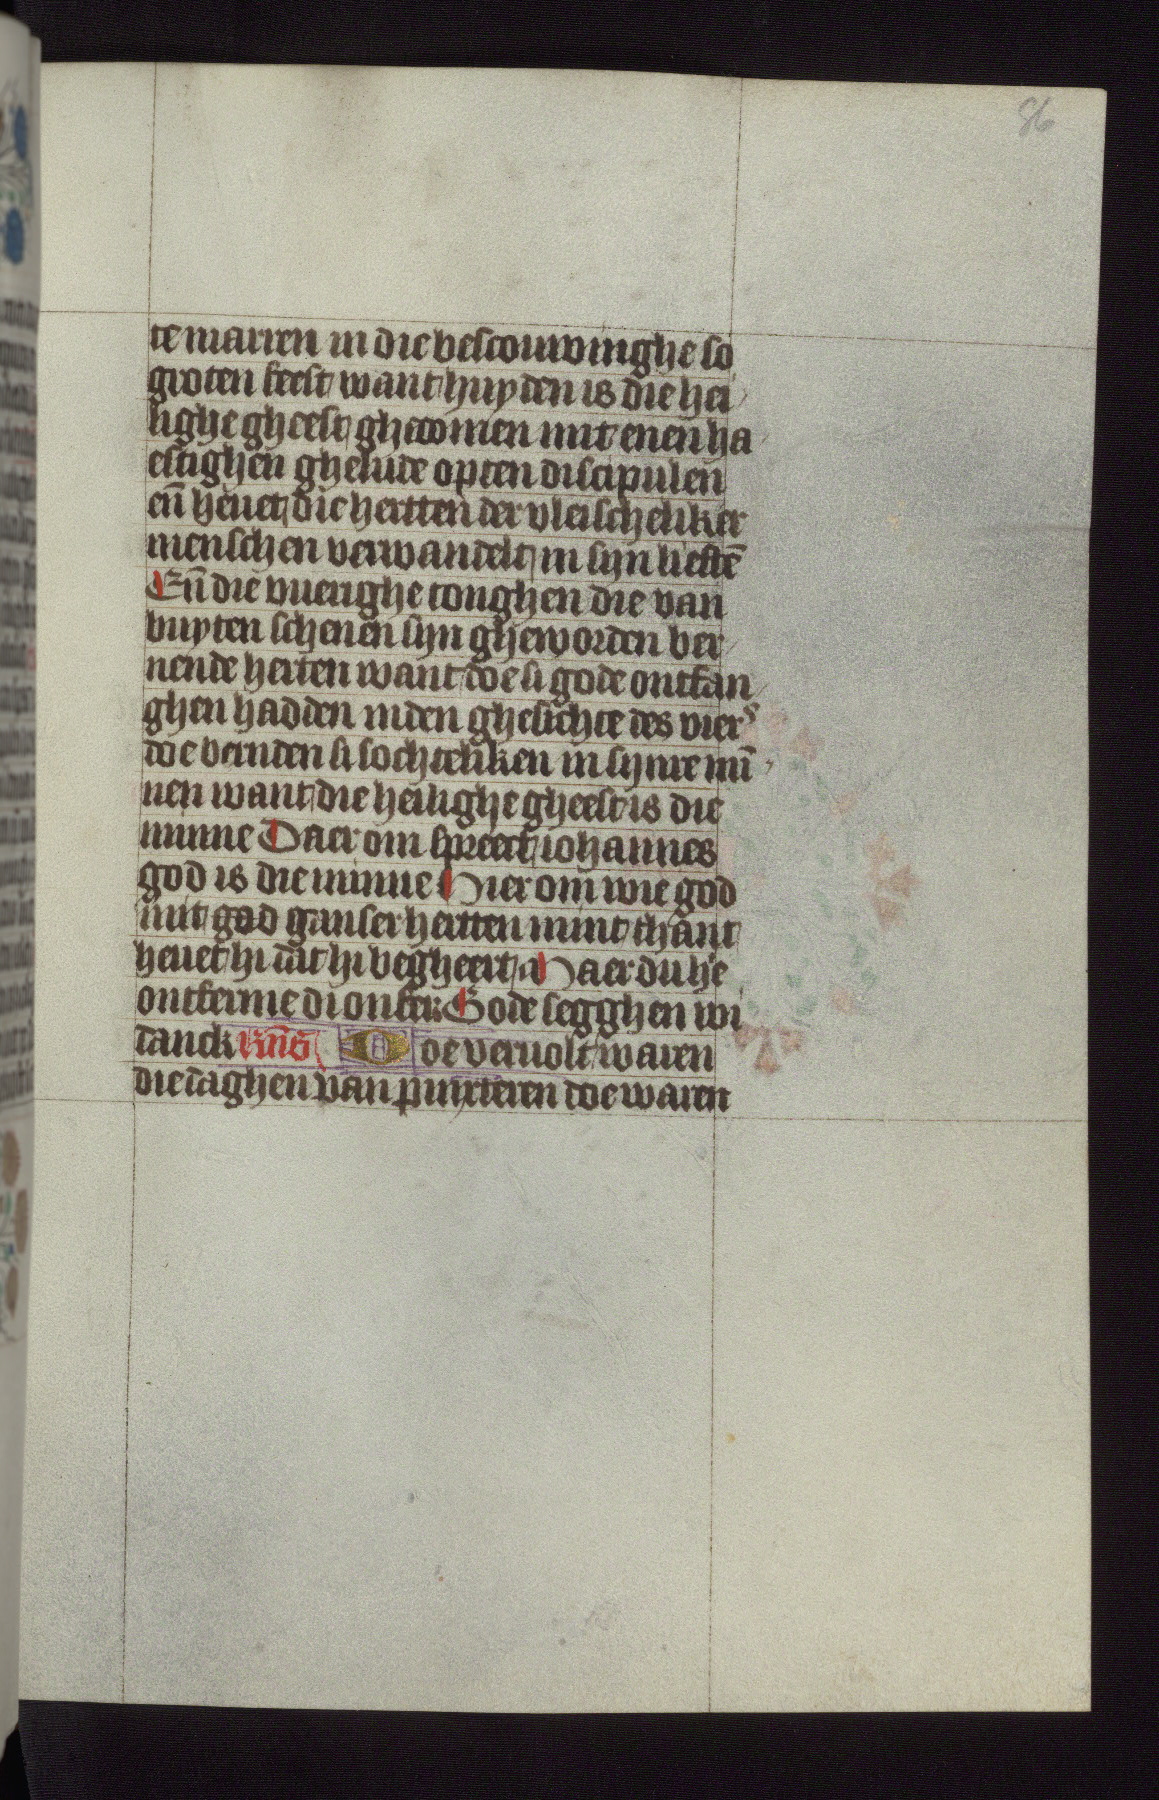 86
te marien in die bescouwinghe so
groten feest want huyden is die hei
lighe gheest ghecomen mit enen ha
estighen ghelude opten discipulen
en̄ heuet die hertten der vleischeliker
menschen verwandelt in sijn liefte̅
En̄ die vuerighe tonghen die van
buyten schenen sijn gheworden ber
nende herten want doe si gode ontfan
ghen hadden inden ghesichte des viers
doe bernden si sochteliken in sijnre mī
nen want die heilighe gheest is die
minne Daer om spreect iohannes
god is die minne Hier om wie god
mit god ganser hertten mint thant
heuet hi dat hi begheert Maer du he
ontferme di onser Gode segghen wi
danck Doe veruolt waren
die daghen van pinxteren doe waren